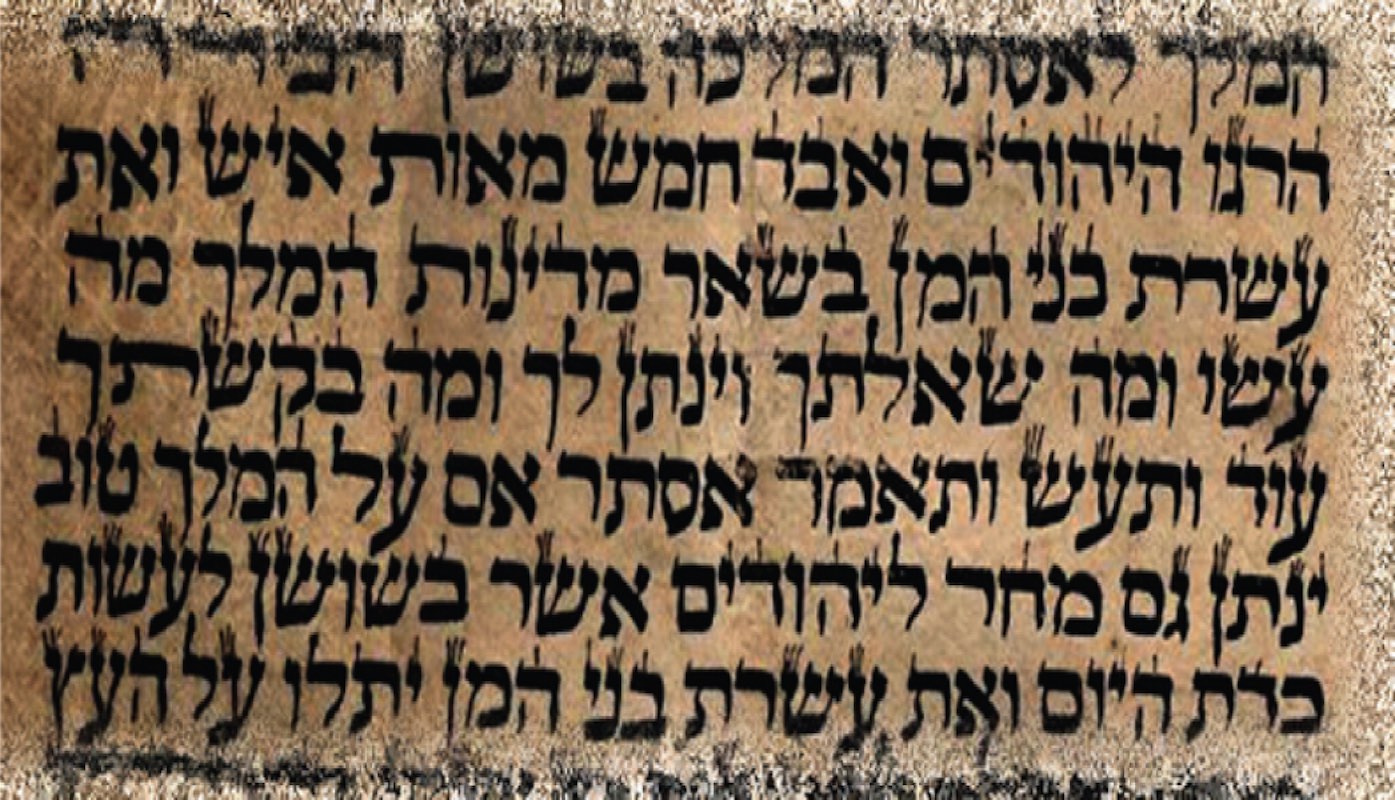 המלך לאסתר המלכה בשושן הבירה
הרגו היהודים ואבד חמש מאות איש ואת
עשרת בני המן בשאר מדינות המלך מה
עשו ומה שאלתך וינתן לך ומה בקשתך
עוד ותעש ותאמר אסתר אם על המלך טוב
ינתן גם מחר ליהודים אשר בשושן לעשות
כדת היום ואת עשרת בני המן יתלו על העץ